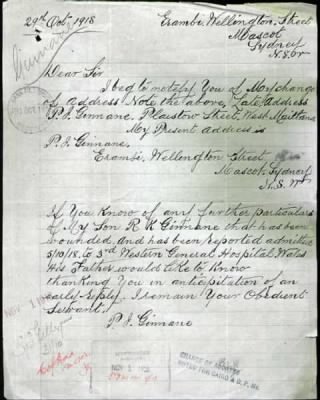 29th Oct. 1918
Erambi, Wellington Street
Mascot
Sydney
N.S.W
Dear Sir
I beg to notify You of My change
of address Note the above, Late Address
P. J. Ginnane, Plaistow Street, West Maitland
My Present address is
P. J. Ginnane,
Erambi, Wellington Street
Mascot, Sydney
N. S. W
If You Know of any further particulars
of My Son R K Ginnane that has been
wounded, and has been reported admitted
5/10/18 to 3rd Western General Hospital Wales
His Father would like to Know
thanking You in anticipation of an
early reply. I remain Your Obedient
Servant,
P. J. Ginnane
NOV 1918
NOV 5 1918
CHANGE OF ADDRESS
NOTED FOR CAIRO & D.P. No.